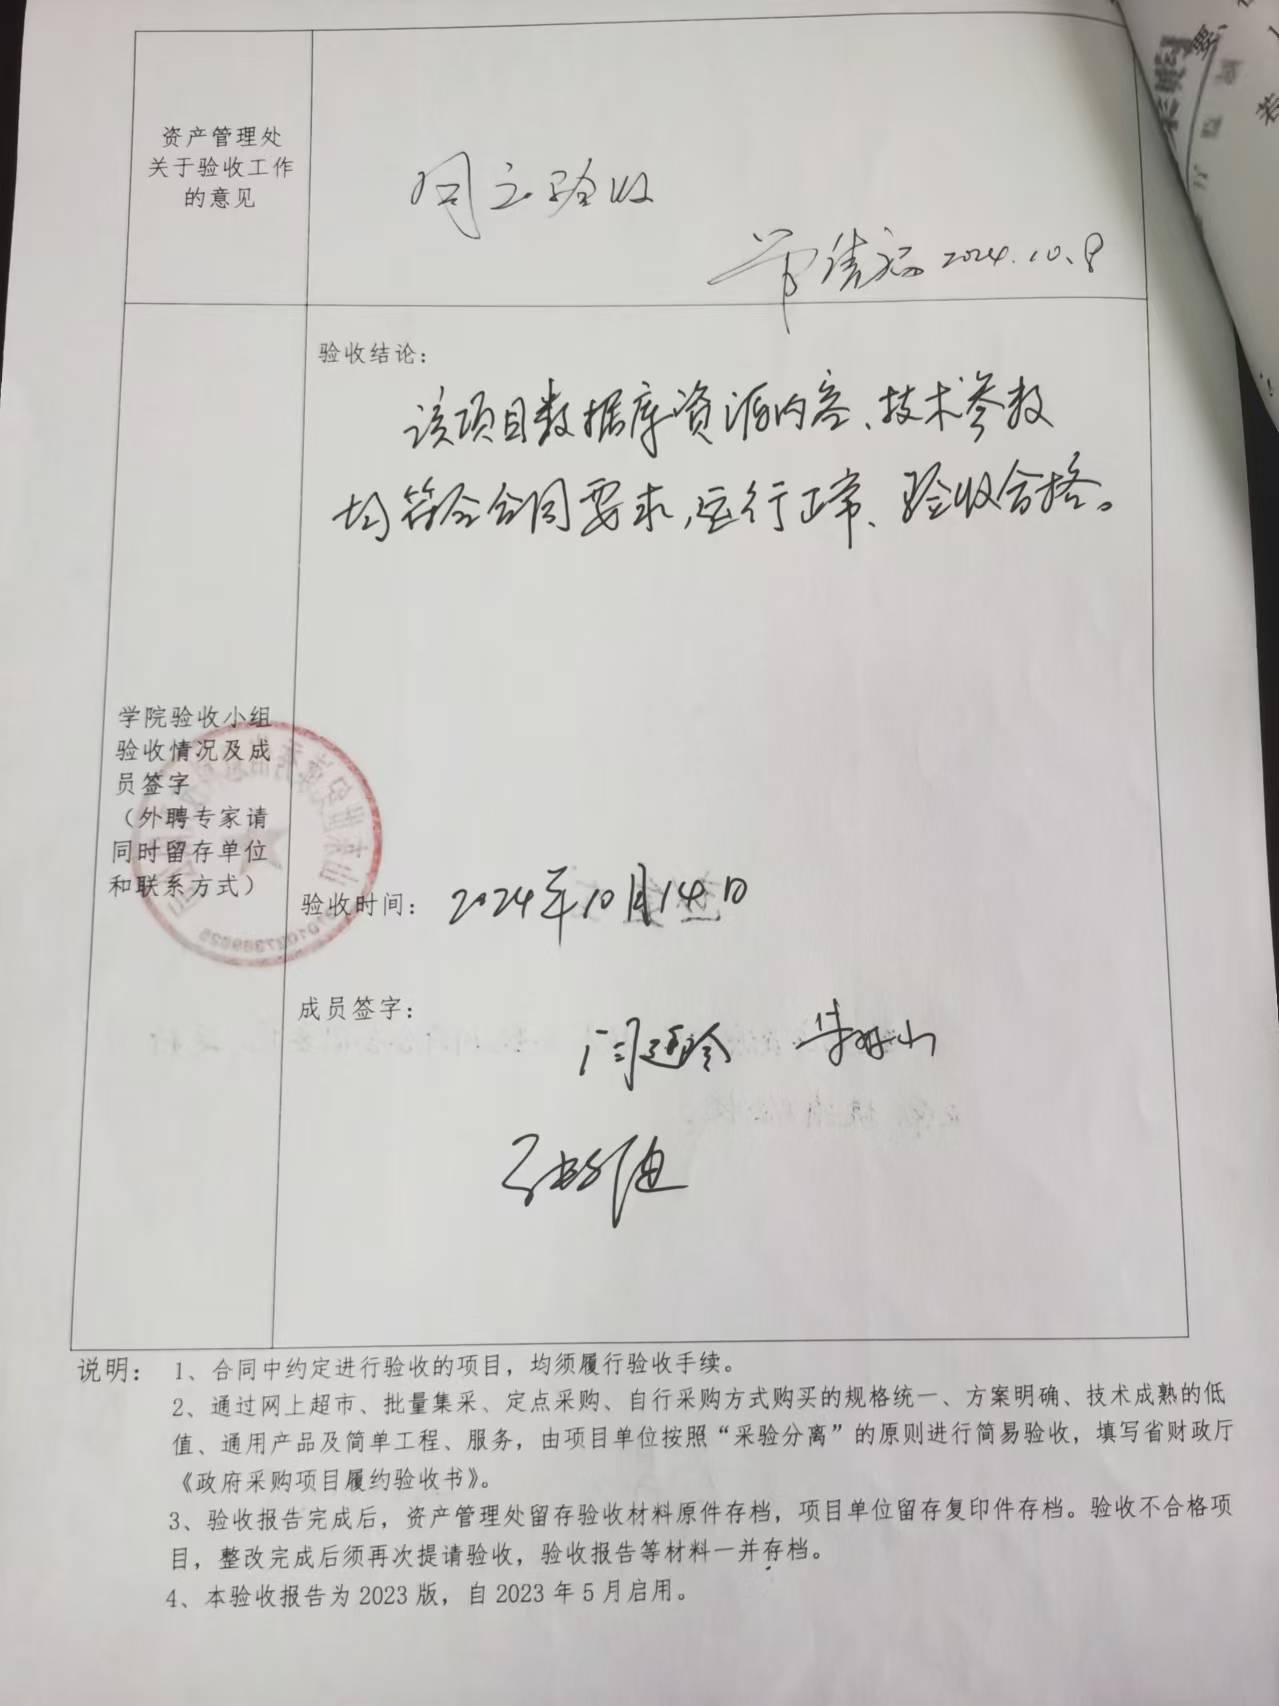 资产管理处
关于验收工作
的意见
同意验收
2024.10.8
验收结论：
该项目数据库资源内容、技术参数
均符合合同要求,运行正常、验收合格。
学院验收小组
验收情况及成
员签字
（外聘专家请
同时留存单位
和联系方式）
验收时间： 2024年10月14日
成员签字：
说明： 1、合同中约定进行验收的项目，均须履行验收手续。
2、通过网上超市、批量集采、定点采购、自行采购方式购买的规格统一、方案明确、技术成熟的低
值、通用产品及简单工程、服务，由项目单位按照“采验分离”的原则进行简易验收，填写省财政厅
《政府采购项目履约验收书》。
3、验收报告完成后，资产管理处留存验收材料原件存档，项目单位留存复印件存档。验收不合格项
目，整改完成后须再次提请验收，验收报告等材料一并存档。
4、本验收报告为 2023 版，自 2023 年 5 月启用。